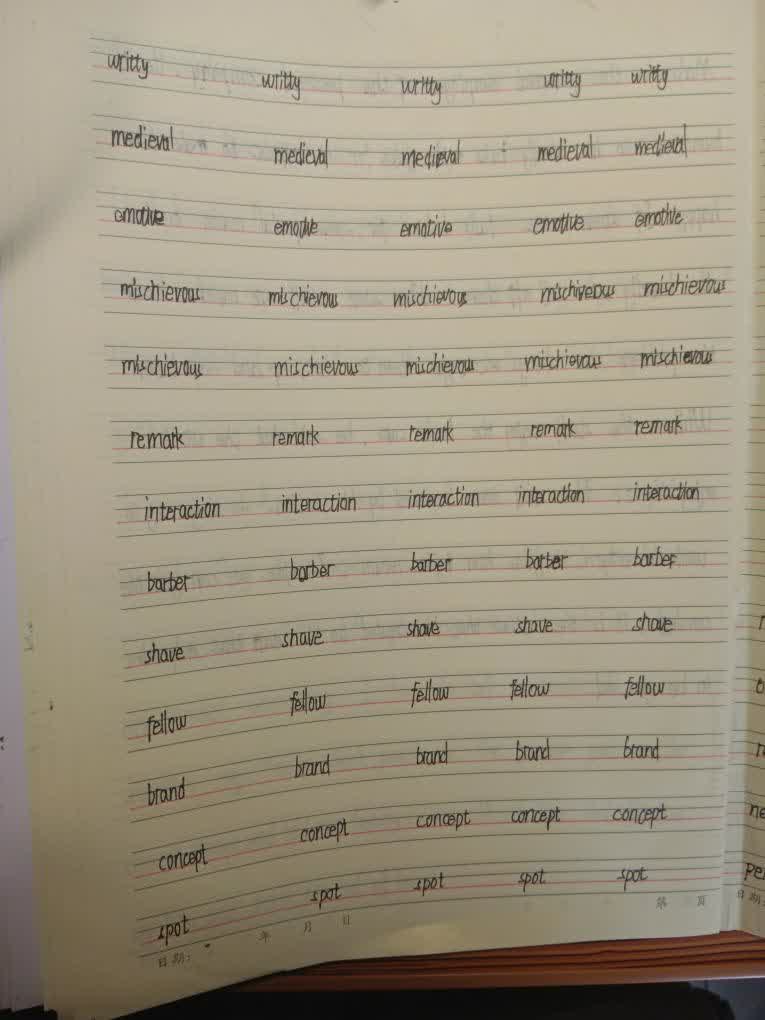 writty writty writty writty writty
medieval medieval medieval medieval medieval
emotive emotive emotive emotive emotive
mischievous mischievous mischievous mischiveous mischievous
mischievous mischievous mischievous mischievous mischievous
remark remark remark remark remark
interaction interaction interaction interaction interaction
barber barber barber barber barber
shave shave shave shave shave
fellow fellow fellow fellow fellow
brand brand brand brand brand
concept concept concept concept concept
spot spot spot spot spot
日期: 年 月 日 第 页
ne
pe
日期: